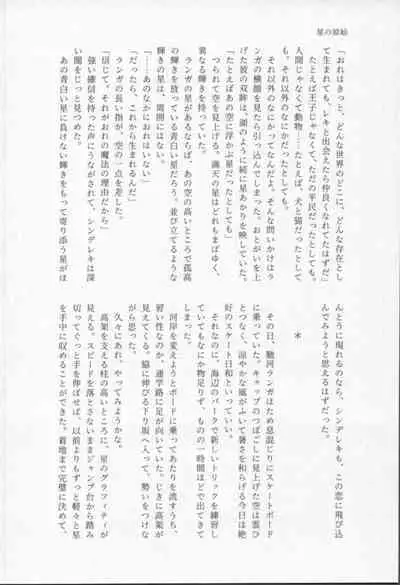 星の原始
「おれはきっと、どんな世界のどこに、どんな存在とし
て生まれても、レキと出会えたら仲良くなれてたはずだ」
「たとえば王子じゃなくて、ただの平民だったとしても。
人間じゃなくて動物……たとえば、犬と猫だったとして
も。それ以外のなにかだったとしても」
それ以外のなにかってなんだよ。そんな問いかけはラ
ンガの横顔を見たら引っ込んでしまった。おとがいを上
げた彼の双眸は、湖のように綺に星あかりを映していた。
「たとえばあの空に浮かぶ星だったとしても」
つられて空を見上げる。満天の星はどれもまばゆく、
異なる輝きを持っていた。
ランガの星があるならば、あの空の高いところで孤高
の輝きを放っている青白い星だろう。並び立てるような
輝きの星は、周囲にはない。
「……あのなかにおれはいない」
「だったら、これから生まれるんだ」
ランガの長い指が、空の一点を差した。
「信じて。それがおれの魔法の理由だから」
強い確信を持った声にうながされて、シンデレキは深
い闇をじっと見つめた。
あの青白い星に負けない輝きをもって寄り添う星がほ
んとうに現れるのなら、シンデレキも、この恋に飛び込
んでみようと思えるはずだった。
＊
その日、馳河ランガはため息混じりにスケートボード
に乗っていた。キャップのつばごしに見上げた空は雲ひ
とつなく、涼やかな風がふいて暑さを和らげる今日は絶
好のスケート日和といっていい。
それなのに、海辺のパークで新しいトリックを練習し
ていてもなにか物足りず、ものの一時間ほどで出てきて
しまった。
河岸を変えようとボードに乗ってあたりを流すうち、
習い性なのか、通学路に足が向いていた。じきに高架が
見えてくる。脇に伸びる下り坂へ入って、勢いをつけな
がら思った。
久々にあれ、やってみようかな。
高架を支える柱の高いところに、星のグラフィティが
見える。スピードを落とさないままジャンプ台から踏み
切ってぐっと手を伸ばせば、以前よりもずっと軽々と星
を手中に収めることができた。着地まで完璧に決めて、